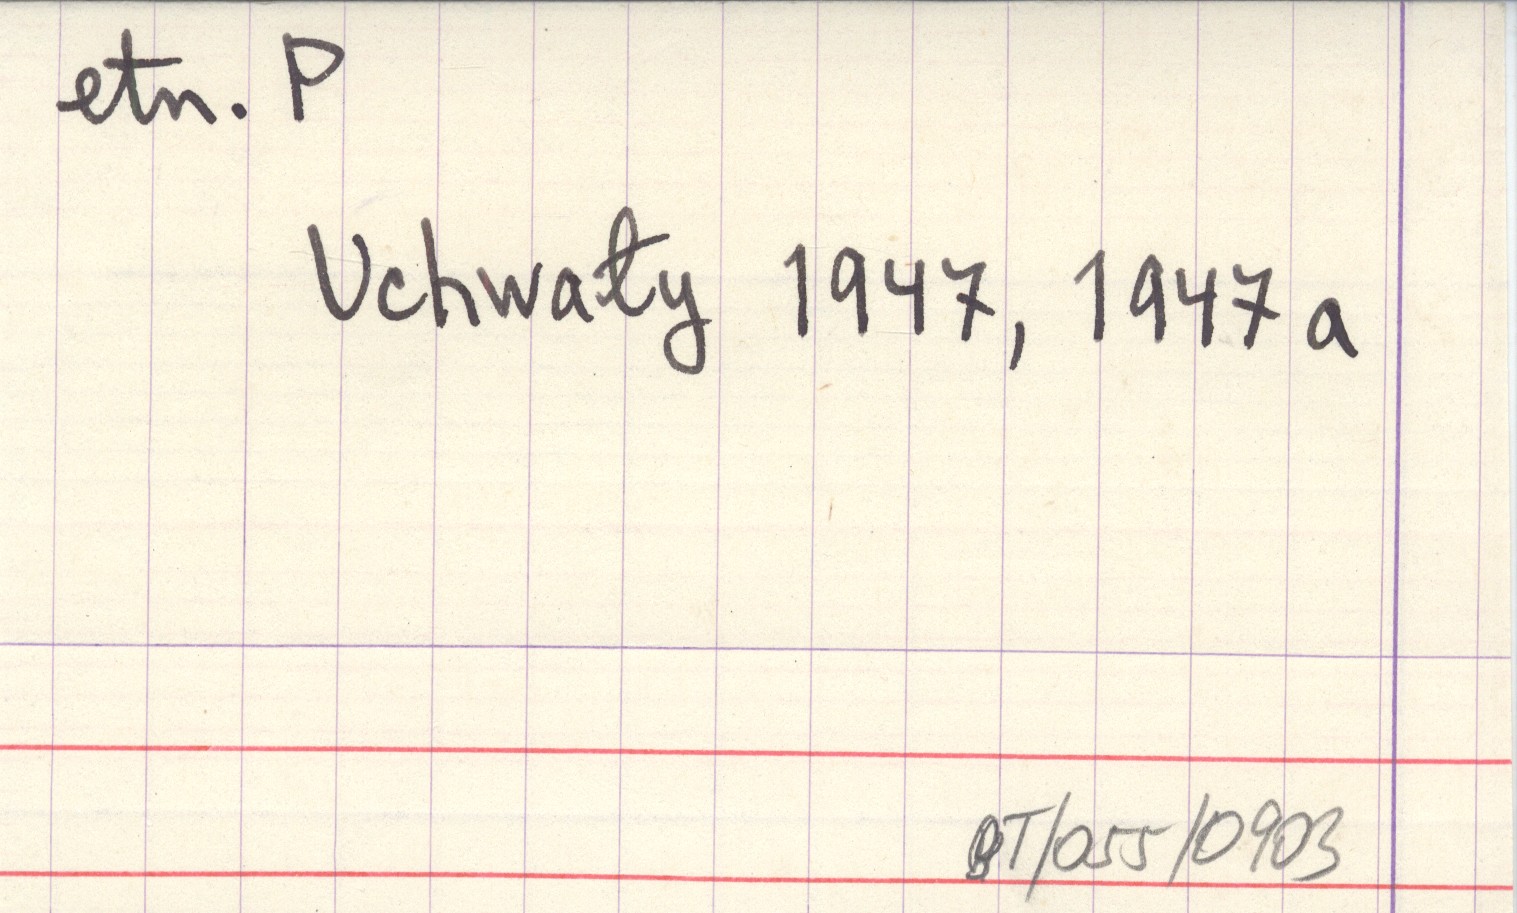 etn. P
Uchwały 1947, 1947a
BT/055/0903